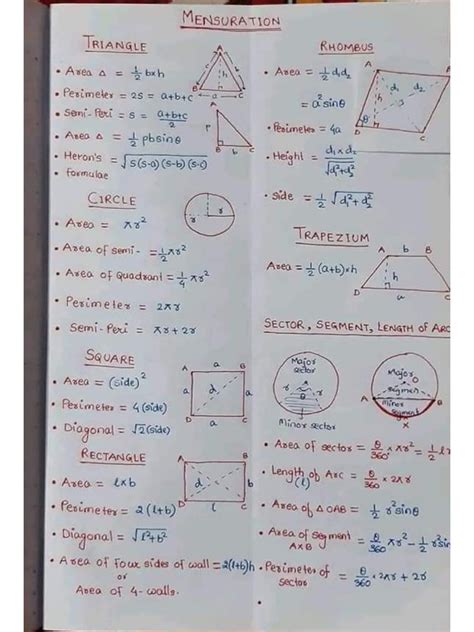 MENSURATION
TRIANGLE
• Area Δ = 1/2 b×h
• Perimeter = 2S = a+b+c
• Semi-Peri = S = (a+b+c)/2
• Area Δ = 1/2 pb sinθ
• Heron's = √S(S-a)(S-b)(S-c)
• formulae
A
c
h
B
a
C
P
B
b
C
CIRCLE
• Area = πr²
• Area of semi- = 1/2 πr²
• Area of Quadrant = 1/4 πr²
• Perimeter = 2πr
• Semi-Peri = πr + 2r
r
r
SQUARE
• Area = (side)²
• Perimeter = 4(side)
• Diagonal = √2(side)
A
a
B
a
d
a
D
a
C
RECTANGLE
• Area = l×b
• Perimeter = 2(l+b)
• Diagonal = √l²+b²
• Area of four sides of wall = 2(l+b)h
or
Area of 4-walls.
A
B
d
b
D
l
C
RHOMBUS
• Area = 1/2 d₁d₂
= a² sinθ
• Perimeter = 4a
• Height = (d₁×d₂)/√d₁²+d₂²
• side = 1/2 √d₁²+d₂²
A
B
d₁
d₂
h
θ
D
a
C
TRAPEZIUM
Area = 1/2 (a+b)×h
A
b
B
h
D
a
C
SECTOR, SEGMENT, LENGTH OF ARC
Major
sector
r
r
θ
Minor sector
Major
O
segmen
Minor
segment
A
B
X
• Area of sector = θ/360 × πr² = 1/2 lr
• Length of Arc = θ/360 × 2πr
(l)
• Area of Δ OAB = 1/2 r² sinθ
• Area of segment = θ/360 πr² - 1/2 r² sin
A×B
• Perimeter of = θ/360 × 2πr + 2r
sector